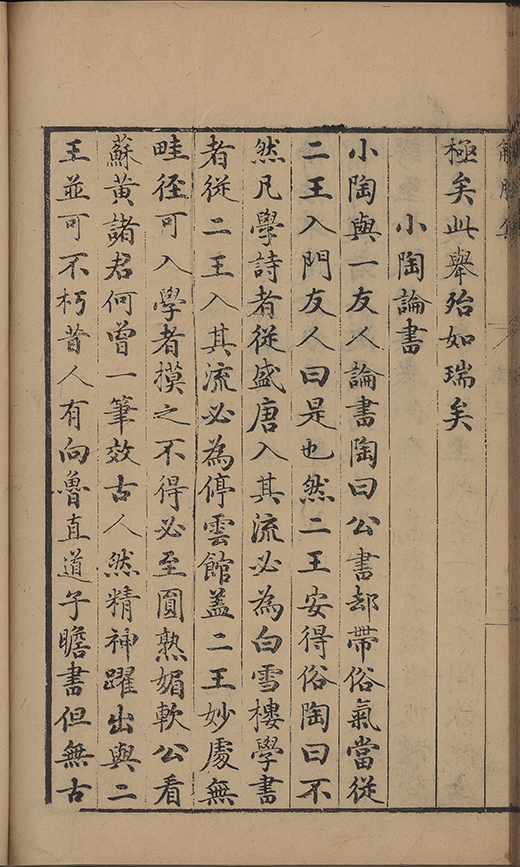 解脫集
極矣此舉殆如瑞矣
小陶論書
小陶與一友人論書陶曰公書却帶俗氣當從
二王入門友人曰是也然二王安得俗陶曰不
然凡學詩者從盛唐入其流必為白雪樓學書
者從二王入其流必為停雲館蓋二王妙處無
畦徑可入學者模之不得必至圓熟媚軟公看
蘇黃諸君何曾一筆效古人然精神躍出與二
王並可不朽昔人有向魯直道子瞻書但無古